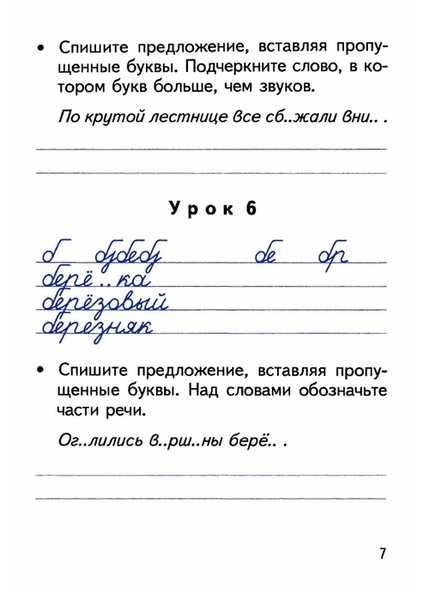 • Спишите предложение, вставляя пропу-
щенные буквы. Подчеркните слово, в ко-
тором букв больше, чем звуков.
По крутой лестнице все сб..жали вни.. .
Урок 6
б бзбебз бе бр
берё..ка
берёзовый
березняк
• Спишите предложение, вставляя пропу-
щенные буквы. Над словами обозначьте
части речи.
Ог..лились в..рш..ны берё.. .
7